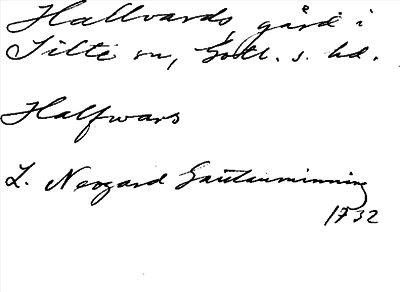 Hallvards, gård i
Silte sn, Gotl. s. hd.
Halfwars
L. Neogard Gautauminning
1732